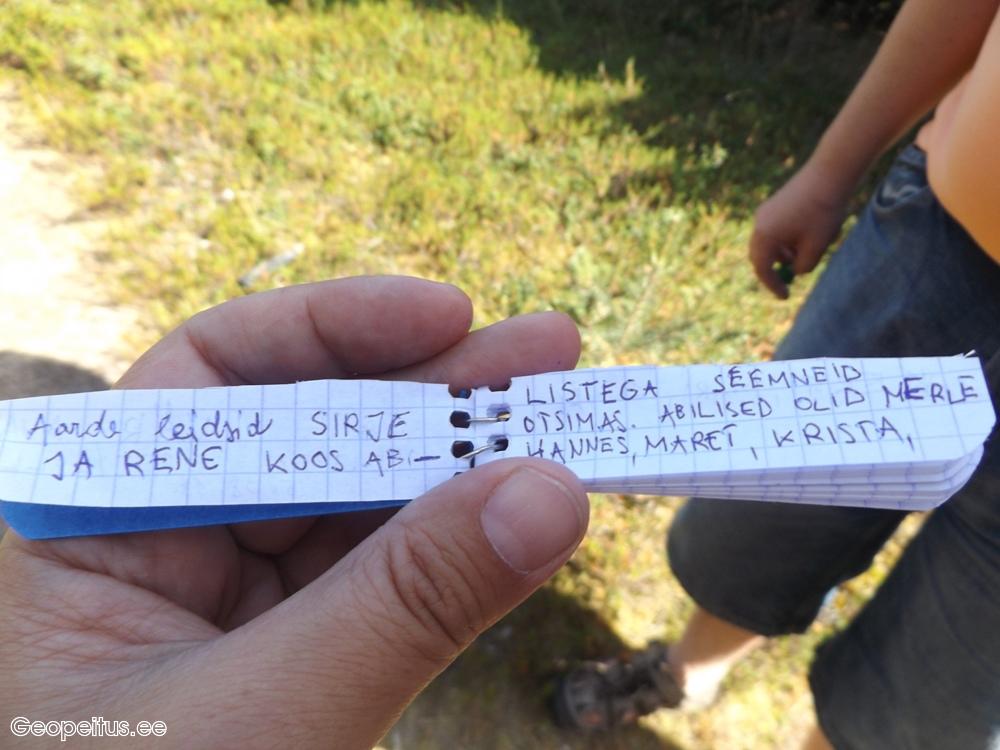 Aarde leidsid SIRJE
JA RENE KOOS ABI-
LISTEGA SEEMNEID
OTSIMAS. ABILISED OLID MERLE
HANNES, MARET, KRISTA,
Geopeitus.ee